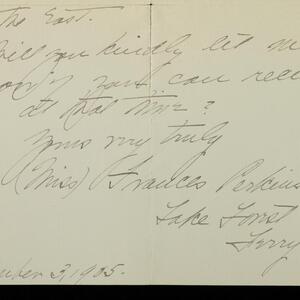 the East.
Will you kindly let m
if you can rece
at that time?
Yours very truly
(Miss) Frances Perkins
Lake Forest
Ferry
mber 3, 1905.